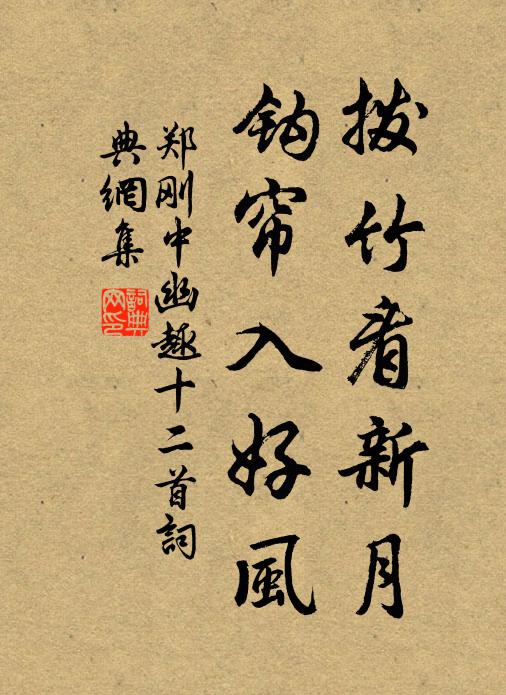 拨竹看新月
钩帘入好風
郑刚中幽趣十二首詞
典網集
詞典
网印